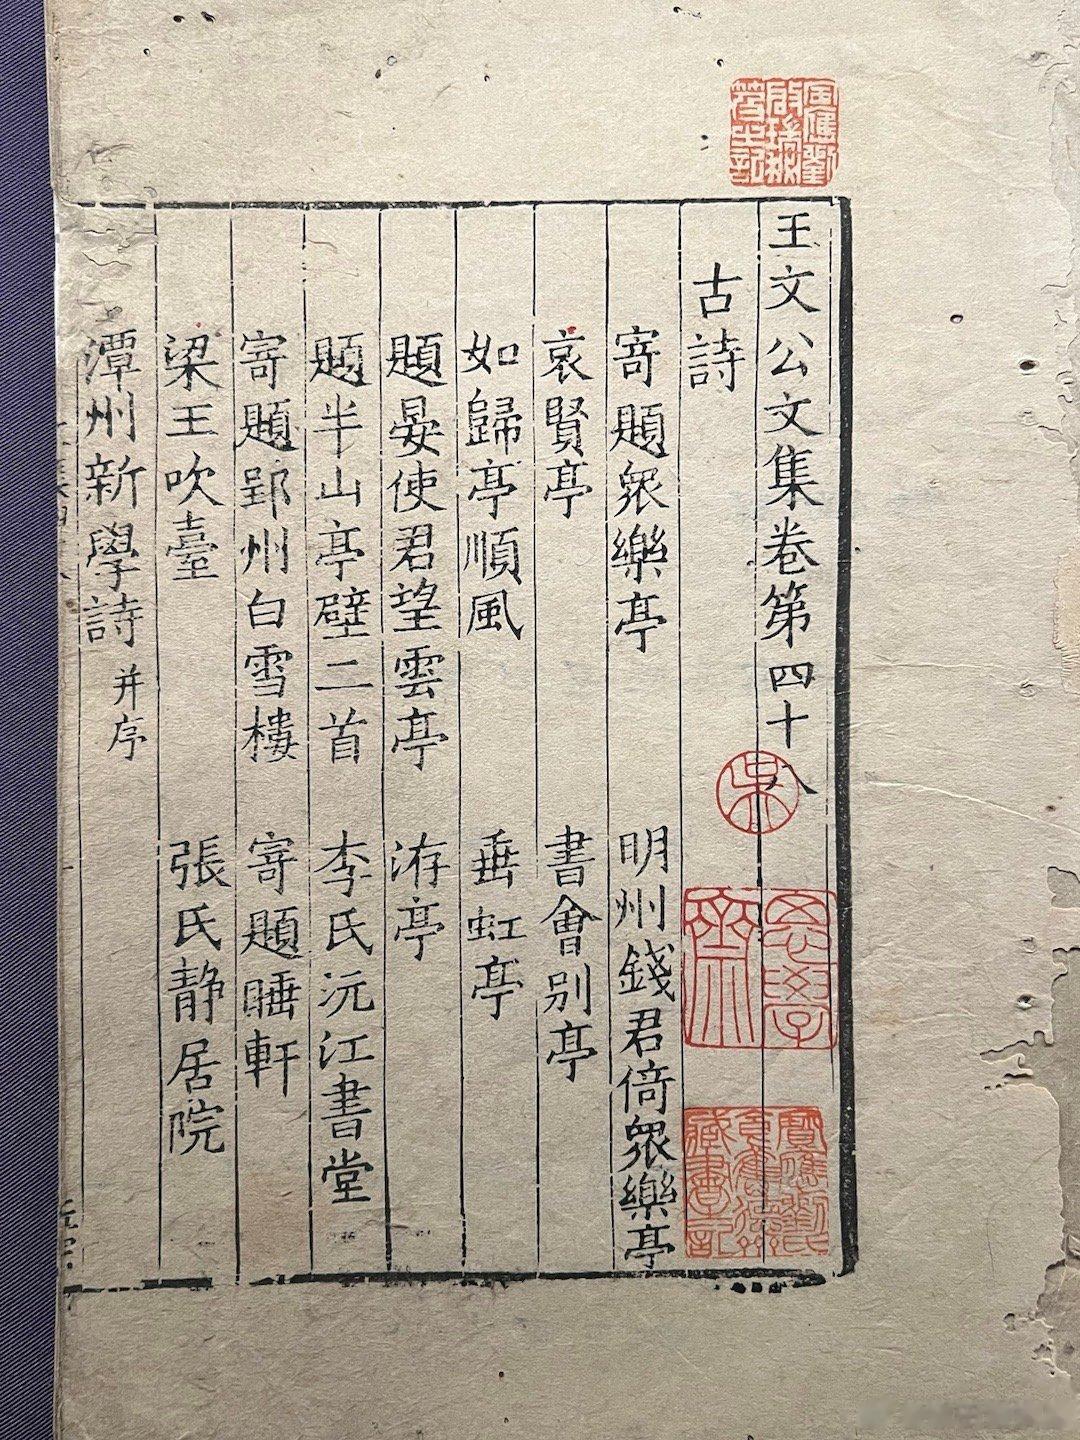 王文公文集卷第四十八
古詩
寄題衆樂亭　明州錢君倚衆樂亭
哀賢亭　書會別亭
如歸亭順風　垂虹亭
題晏使君望雲亭　洊亭
題半山亭壁二首　李氏沅江書堂
寄題郢州白雪樓　寄題睡軒
梁王吹臺　張氏静居院
潭州新學詩并序
寶應劉
啟瑞
思學齋
寶應劉氏
藏書記